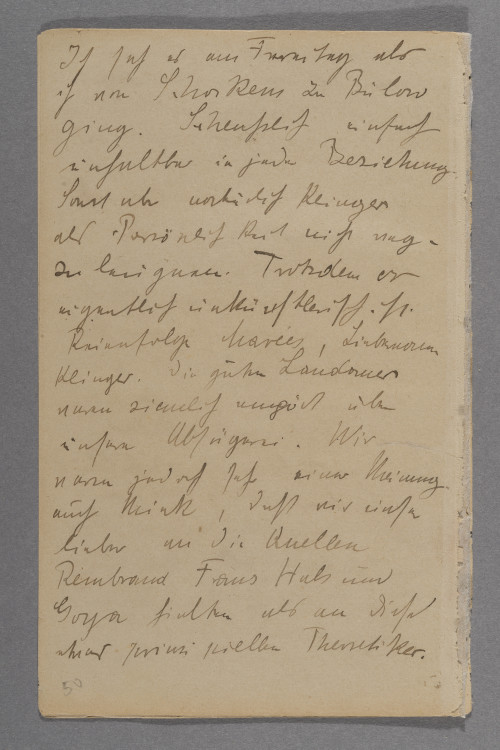 Ich sah es am Freitag als
ich von Schorkens zu Bülow
ging. Scheußlich einfach
unhaltbar in jeder Beziehung.
Sonst aber natürlich Klinger
als Persönlichkeit nicht weg-
zu leugnen. Trotzdem er
eigentlich unkünstlerisch ist.
Reienfolge Marées, Liebermann
Klinger. Die guten Landauer
waren ziemlich empört über
unsere Absägerei. Wir
waren jedoch sehr einer Meinung
auch Mink, daß wir uns
lieber an die Quellen
Rembrand Frans Hals und
Goya hielten als an diese
etwas prinzipiellen Theoretiker.
50